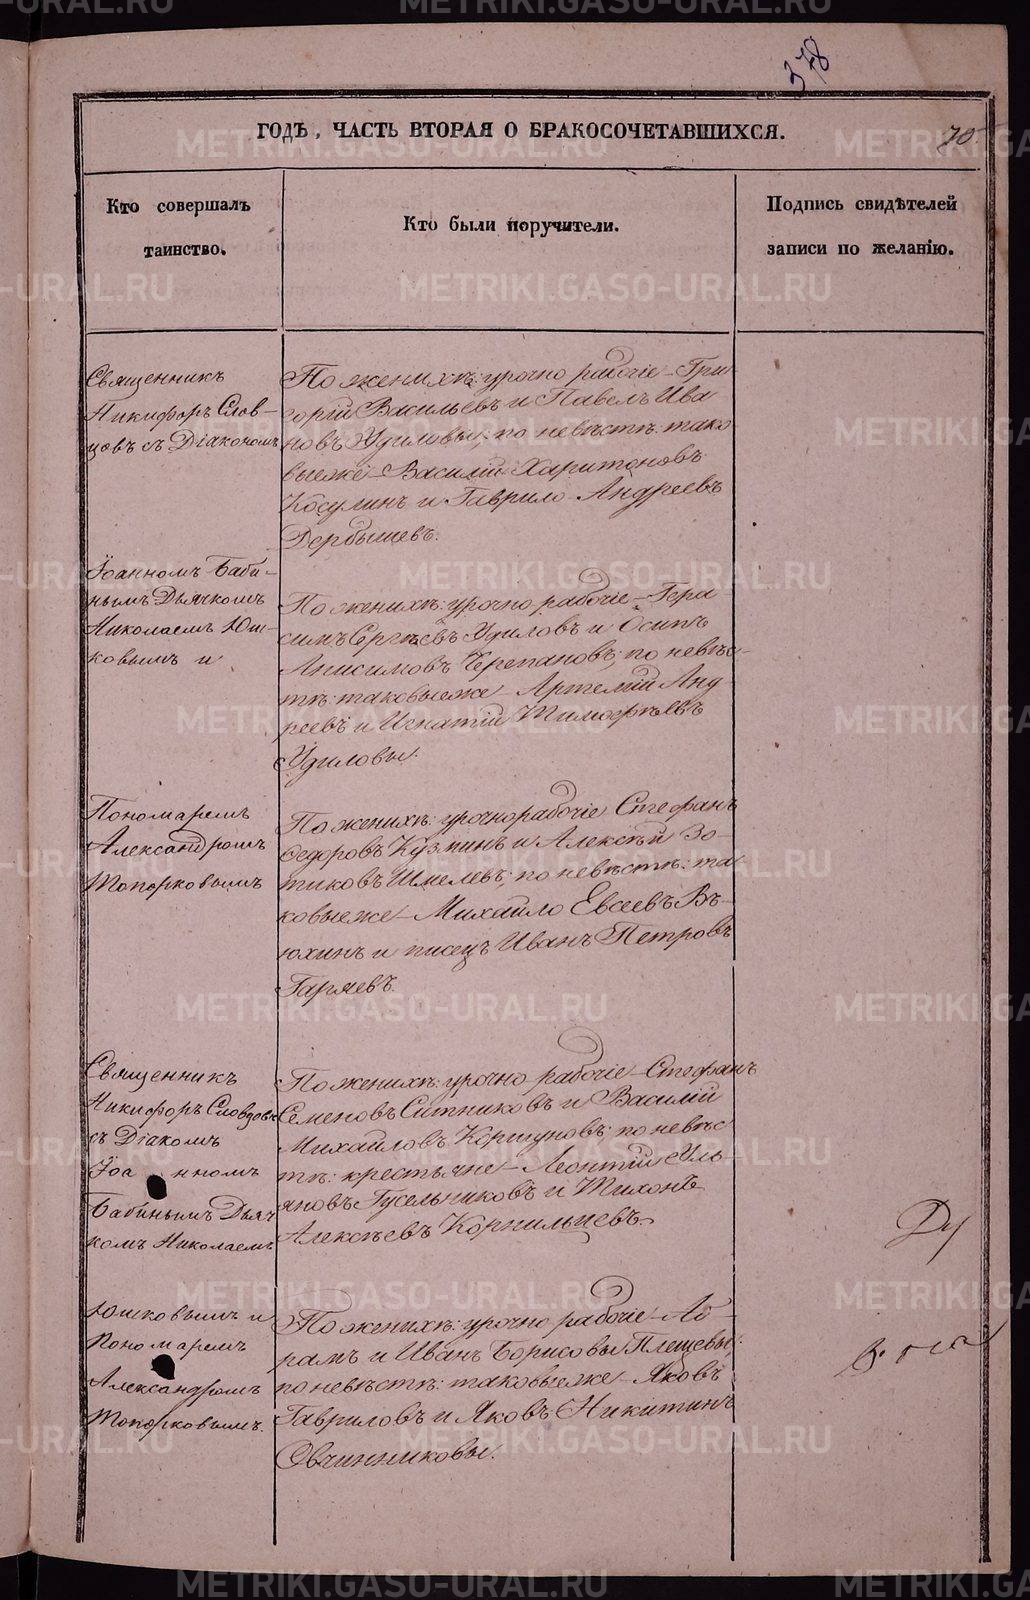 378
ГОДЪ, ЧАСТЬ ВТОРАЯ О БРАКОСОЧЕТАВШИХСЯ.
70
Кто совершалъ
таинство.
Кто были поручители.
Подпись свидѣтелей
записи по желанію.
Священникъ
Никифоръ Слов-
цовъ съ Діакономъ
По женихѣ: урочно рабочіе – Гри
горій Васильевъ и Павелъ Ива
новъ Удиловы; по невѣстѣ: тако
выеже – Василій Харитоновъ
Косулинъ и Гаврило Андреевъ
Дербышевъ.
Іоанномъ Баби-
нымъ Дьячкомъ
Николаемъ Юш-
ковымъ и
По женихѣ: урочно рабочіе – Гера
симъ Сергѣевъ Удиловъ и Осипъ
Анисимовъ Черепановъ; по невѣс-
тѣ: таковыеже – Артемій Анд
реевъ и Игнатій Тимофѣевъ
Удиловы.
Пономаремъ
Александромъ
Топорковымъ
По женихѣ: урочнорабочіе Стефанъ
Федоровъ Кузминъ и Алексѣй Зо-
тиковъ Шмелевъ; по невѣстѣ: та-
ковыеже – Михайло Евсеевъ Вь-
юхинъ и писецъ Иванъ Петровъ
Гаряевъ.
Священникъ
Никифоръ Словцовъ
съ Діакомъ
Іоа нномъ
Бабинымъ Дьяч
комъ Николаемъ
По женихѣ: урочно рабочіе – Стефанъ
Семеновъ Ситниковъ и Василій
Михайловъ Коршуновъ; по невѣс
тѣ: крестьяне – Леонтій Уль-
яновъ Гусельниковъ и Тихонъ
Алексѣевъ Корнильцевъ.
Юшковымъ и
Пономаремъ
Александромъ
Топорковымъ.
По женихѣ: урочно рабочіе – Аб-
рамъ и Иванъ Борисовы Плещевы;
по невѣстѣ: таковыеже – Яковъ
Гавриловъ и Яковъ Никитинъ
Овчинниковы.
Ду
METRIKI.GASO-URAL.RU